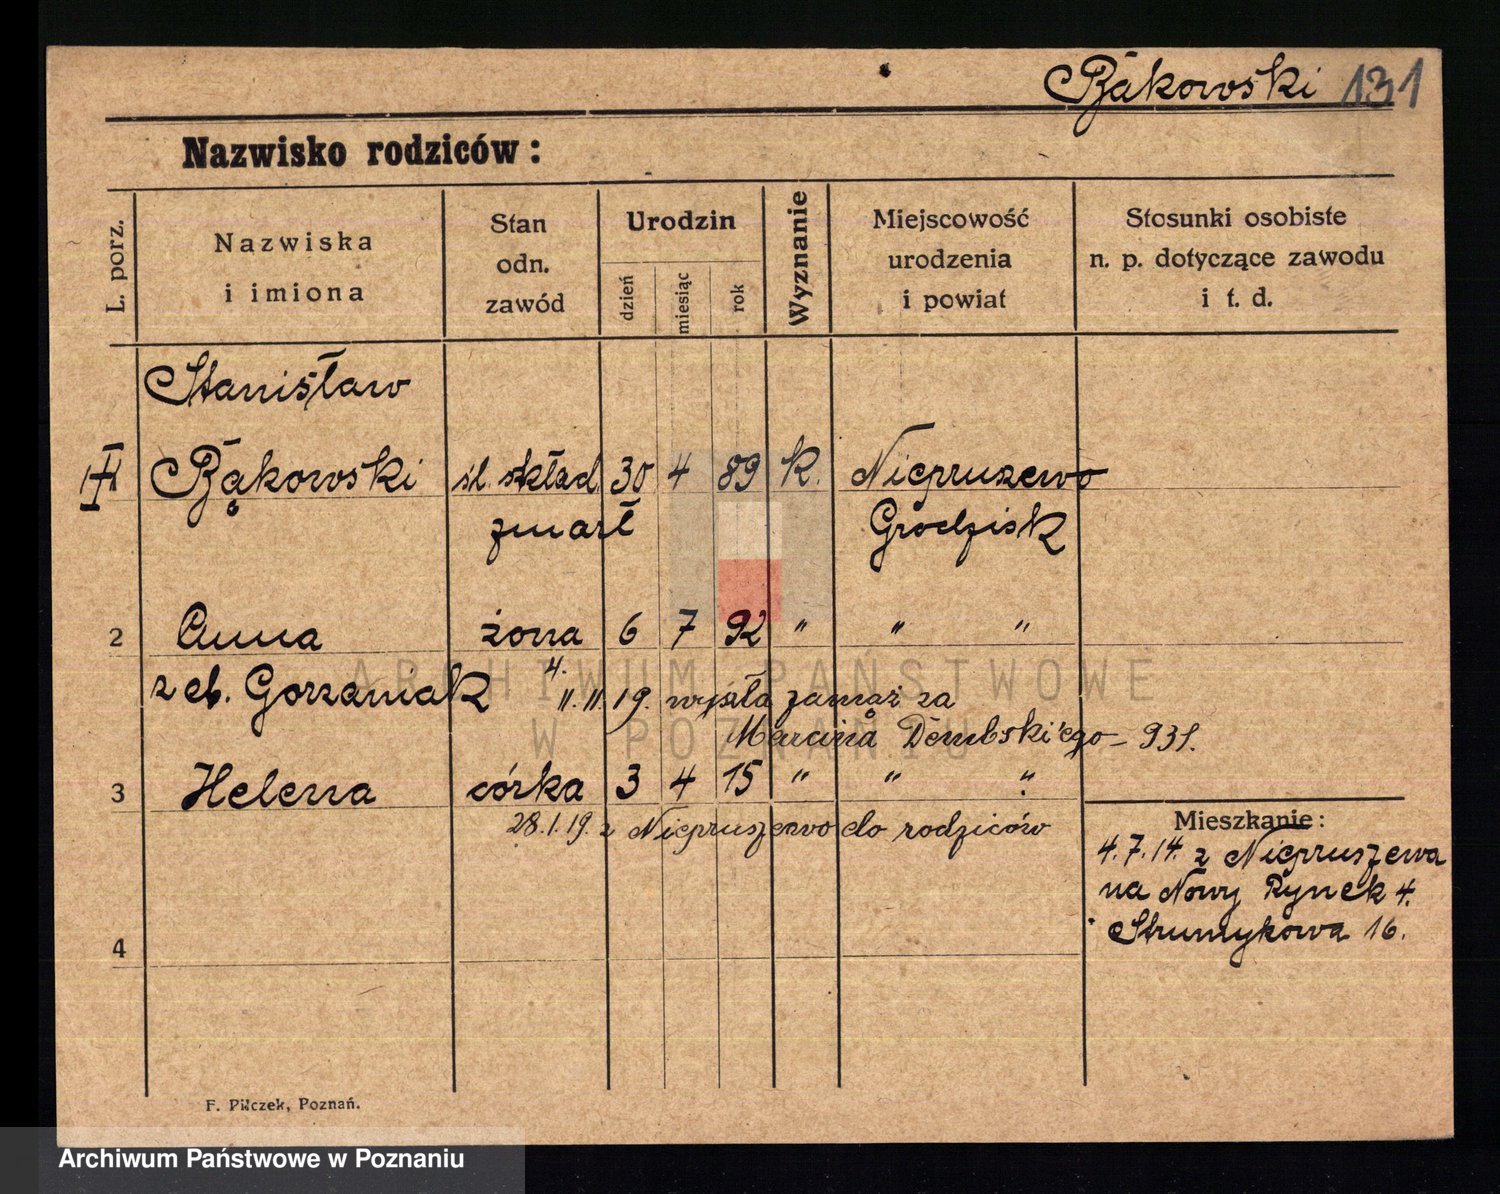 Bąkowski 131
Nazwisko rodziców:
L. porz.
Nazwiska
i imiona
Stan
odn.
zawód
Urodzin
dzień
miesiąc
rok
Wyznanie
Miejscowość
urodzenia
i powiat
Stosunki osobiste
n. p. dotyczące zawodu
i t. d.
Stanisław
Bąkowski sł. skład. 30 4 89 k. Niepruszewo
zmarł Grodzisk
2 Anna żona 6 7 92 " " "
z eb. Gorzaniak 4.
11. 11. 19. wyszła zamąż za
Marcina Dembskiego - 931.
3 Helena córka 3 4 15 " " "
28.1.19. z Niepruszewo do rodziców
Mieszkanie:
4.7.14. z Niepruszewa
na Nowy Rynek 4.
Strumykowa 16.
4
F. Pilczek, Poznań.
ARCHIWUM PAŃSTWOWE
W POZNANIU
Archiwum Państwowe w Poznaniu